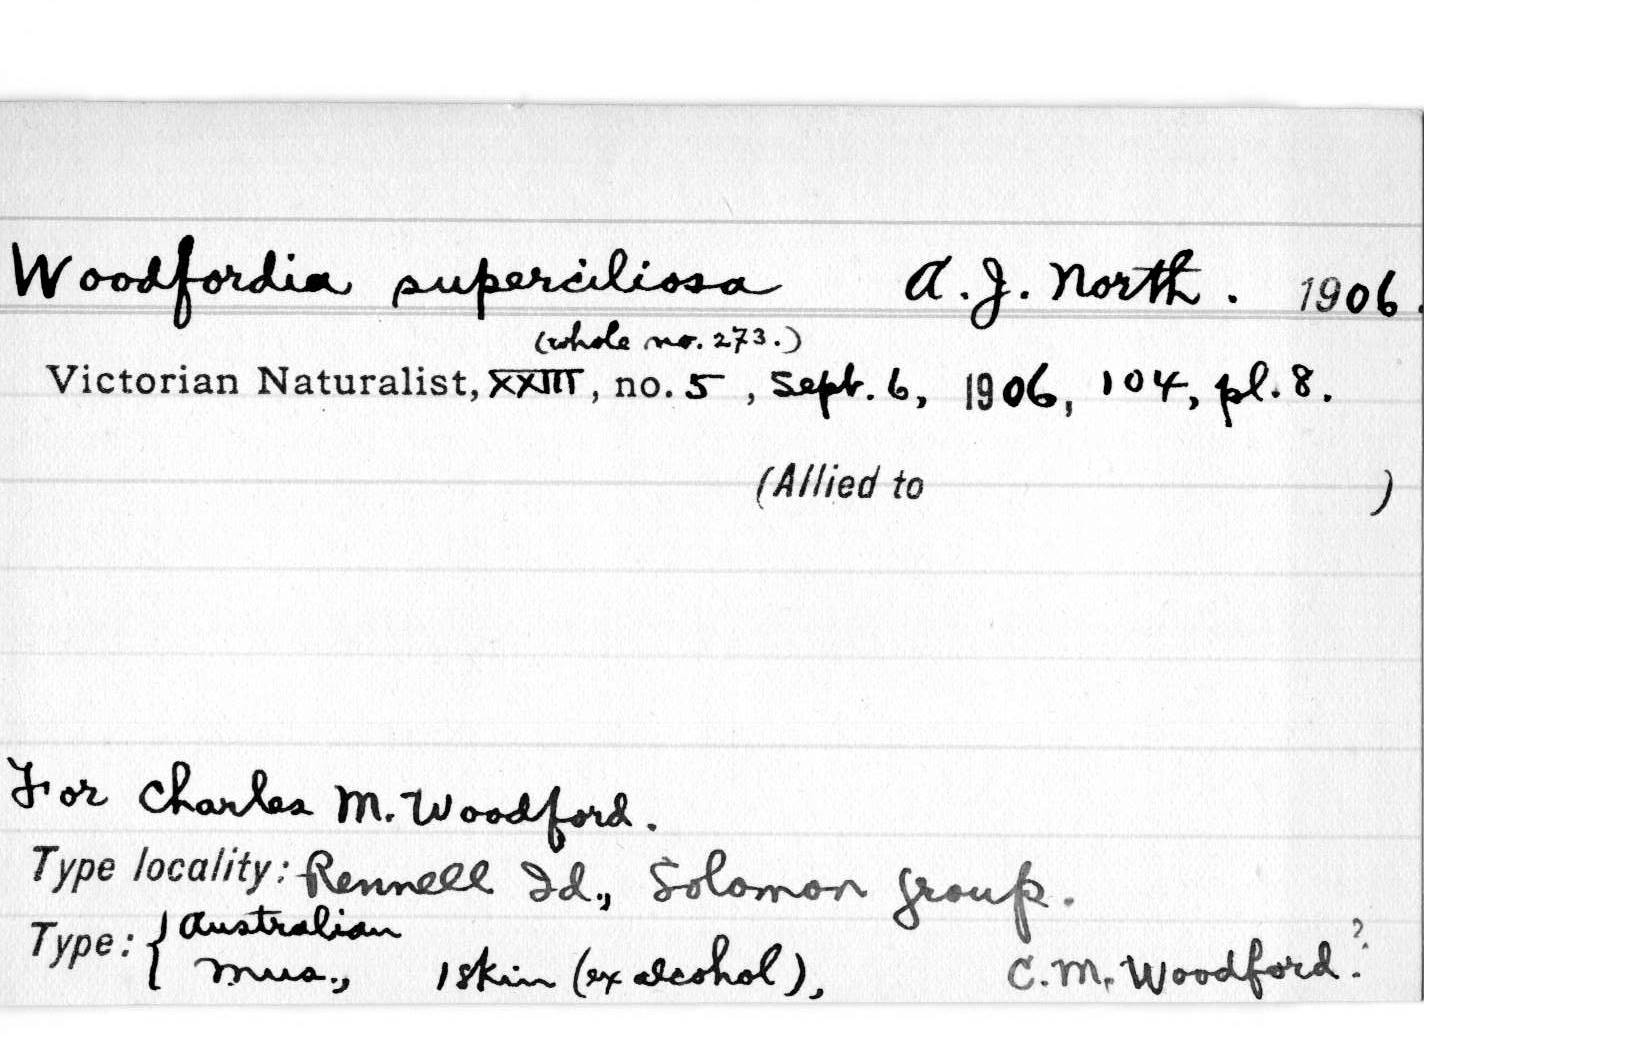 Woodfordia superciliosa A.J. North. 1906.
(whole no. 273.)
Victorian Naturalist, XXIII, no. 5, Sept. 6, 1906, 104, pl. 8.
(Allied to )
For Charles M. Woodford.
Type locality: Rennell Id., Solomon group.
Type: { Australian
Mus., 1 skin (ex alcohol), C.M. Woodford.?